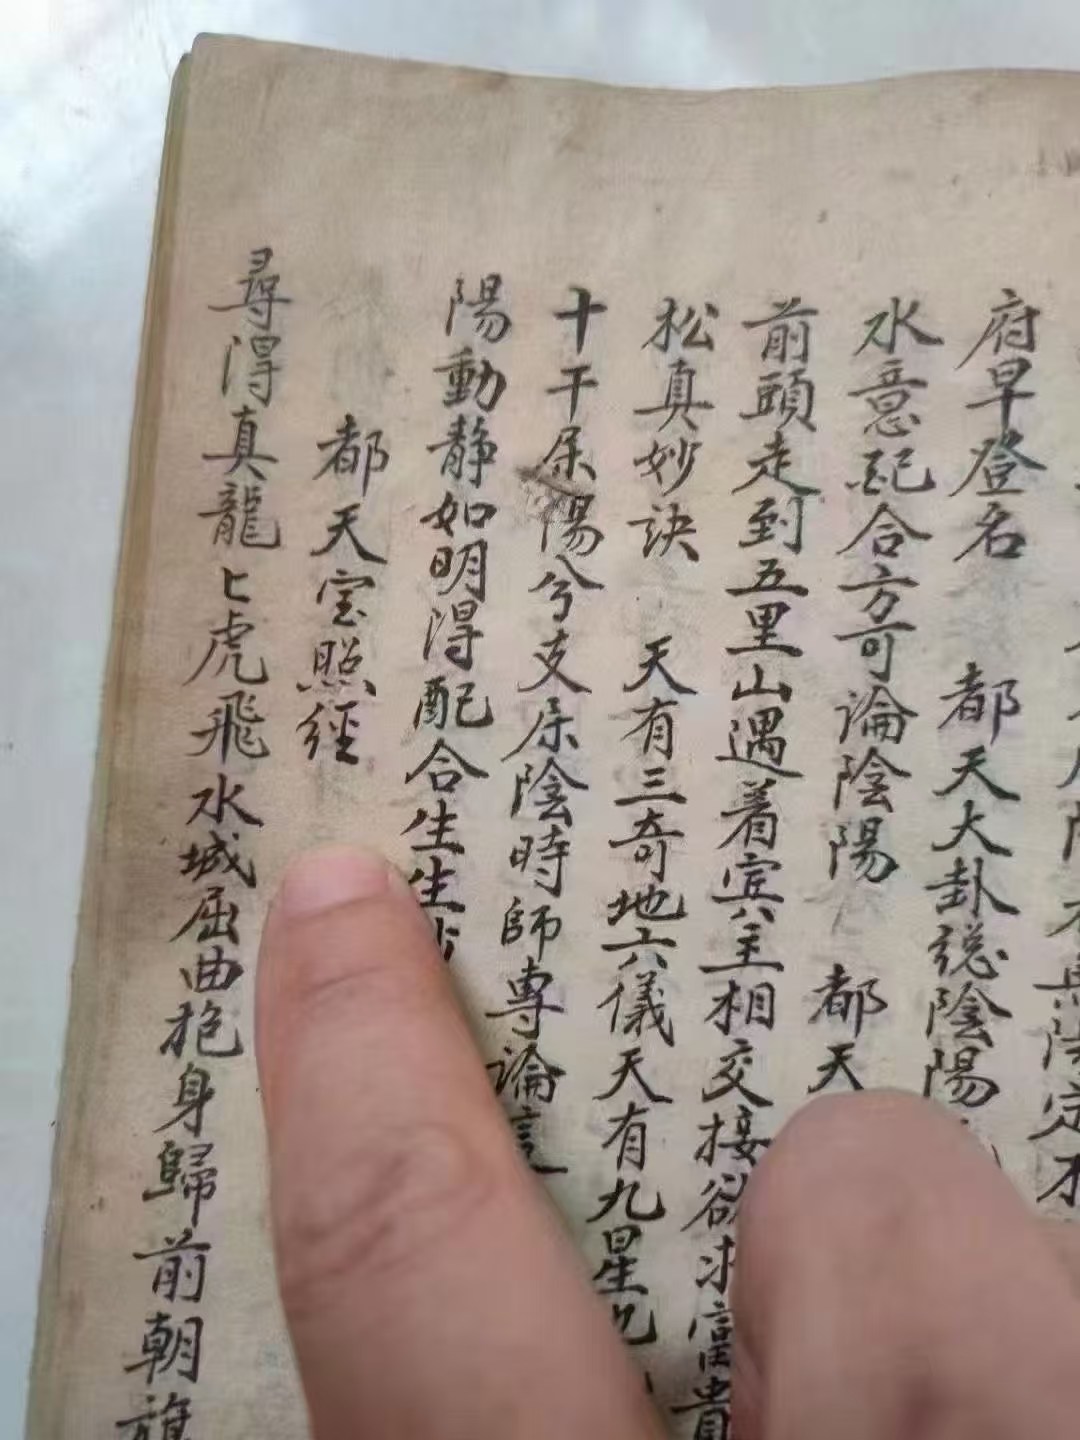 府早登名　都天大卦総陰陽
水意配合方可論陰陽　都天
前頭走到五里山遇着賓主相交接欲求富貴
松真妙訣　天有三奇地六儀天有九星九
十干属陽兮支属陰時師專論這
陽動静如明得配合生生妙
都天宝照經
尋得真龍匕虎飛水城屈曲抱身歸前朝旗